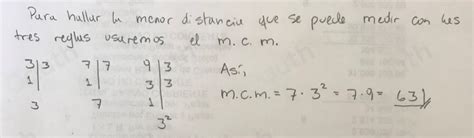 Para hallar la menor distancia que se puede medir con las
tres reglas usaremos el m.c.m.
3|3 7|7 9|3 Así,
1| 1| 3|3 m.c.m. = 7 · 3² = 7 · 9 = 63
3 7 1|
3²